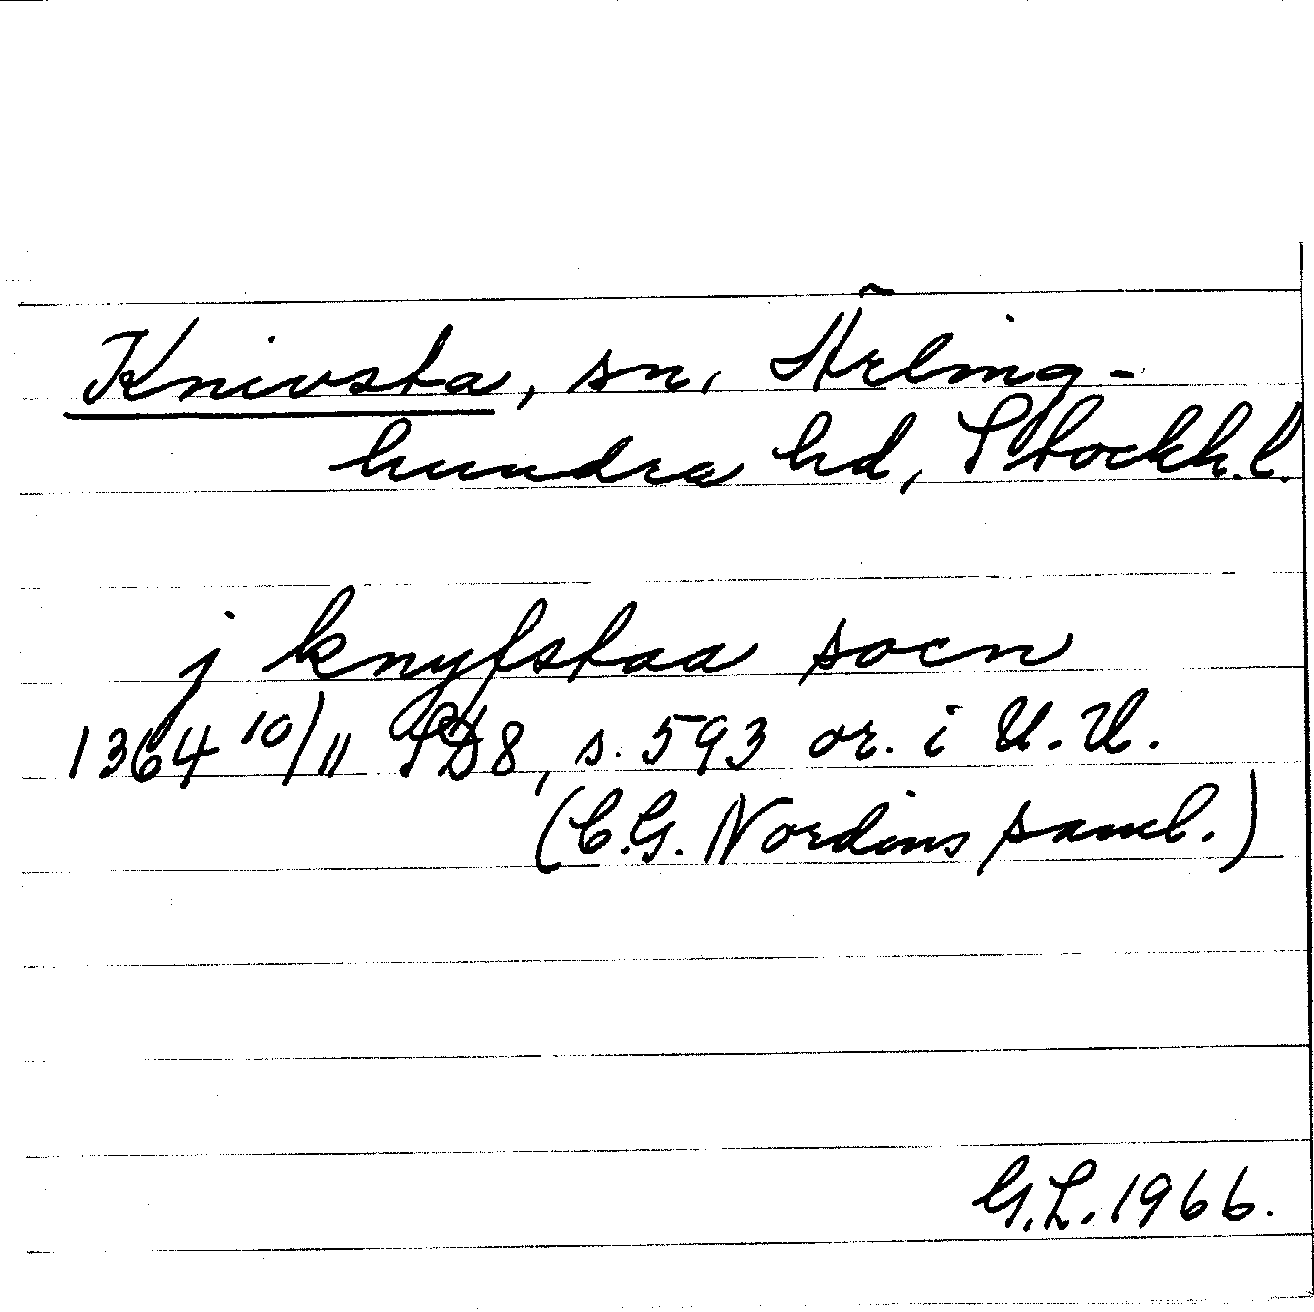 Knivsta, sn, Ärling-
hundra hd, Stockh.l.
j knyfstaa socn
1364 10/11 SD8, s. 593 or. i U.U.
(C.G. Nordins saml.)
G.L. 1966.